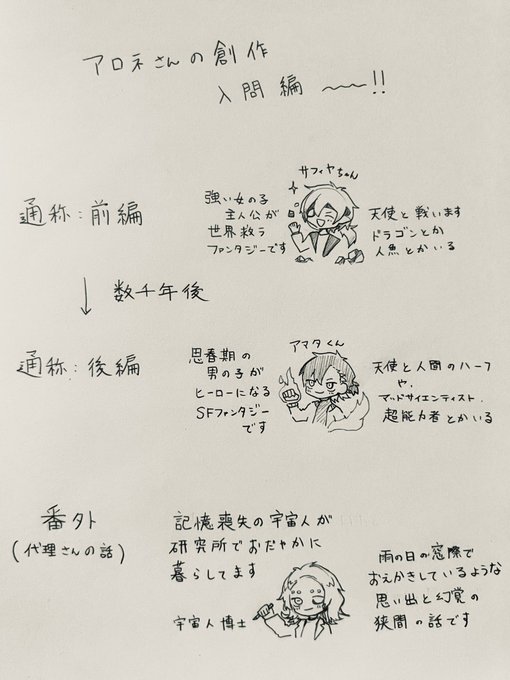 アロネさんの創作
入門編 〜〜!!
サフィヤちゃん
通称:前編
強い女の子
主人公が
世界救う
ファンタジーです
天使と戦います
ドラゴンとか
人魚とかいる
↓ 数千年後
アマタくん
通称:後編
思春期の
男の子が
ヒーローになる
SFファンタジー
です
天使と人間のハーフ
や、
マッドサイエンティスト、
超能力者とかいる
番外
(代理さんの話)
記憶喪失の宇宙人が
研究所でおだやかに
暮らしてます
宇宙人博士
雨の日の窓際で
おえかきしているような
思い出と幻覚の
狭間の話です